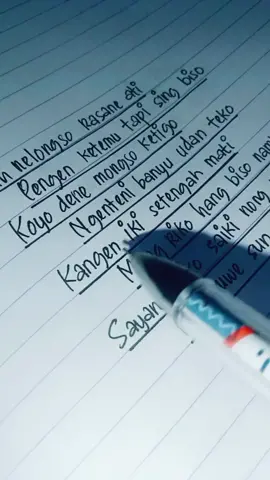 nelongso rasane ati
Pengen ketemu tapi sing biso
Koyo dene mongso ketigo
Ngenteni banyu udan teko
Kangen iki setengah mati
riko hang biso
saiki nong
Sayan